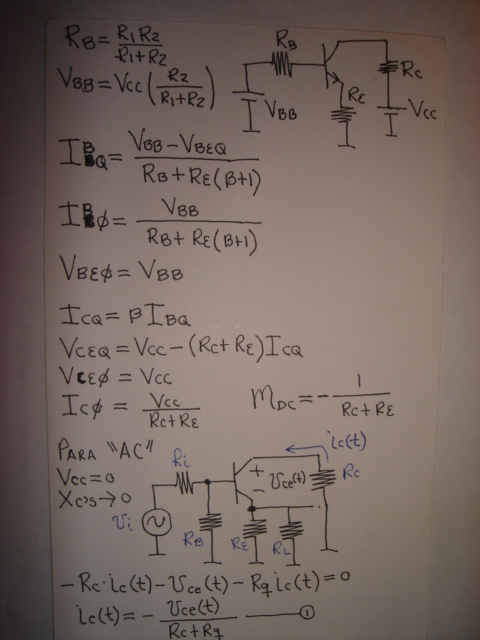 RB = R1R2 / R1+R2
VBB = Vcc (R2 / R1+R2)
RB
RC
RE
VBB
Vcc
IBQ = VBB - VBEQ / RB + RE(β+1)
IBφ = VBB / RB + RE(β+1)
VBEφ = VBB
ICQ = βIBQ
VCEQ = Vcc - (Rc + RE) ICQ
VCEφ = Vcc
ICφ = Vcc / Rc + RE
mDC = - 1 / Rc + RE
PARA "AC"
Vcc = 0
Xc's → 0
Ri
ic(t)
+
Vce(t)
-
Rc
vi
RB
RE
RL
-Rc·ic(t) - Vce(t) - Rq ic(t) = 0
ic(t) = - Vce(t) / Rc + Rq — 1